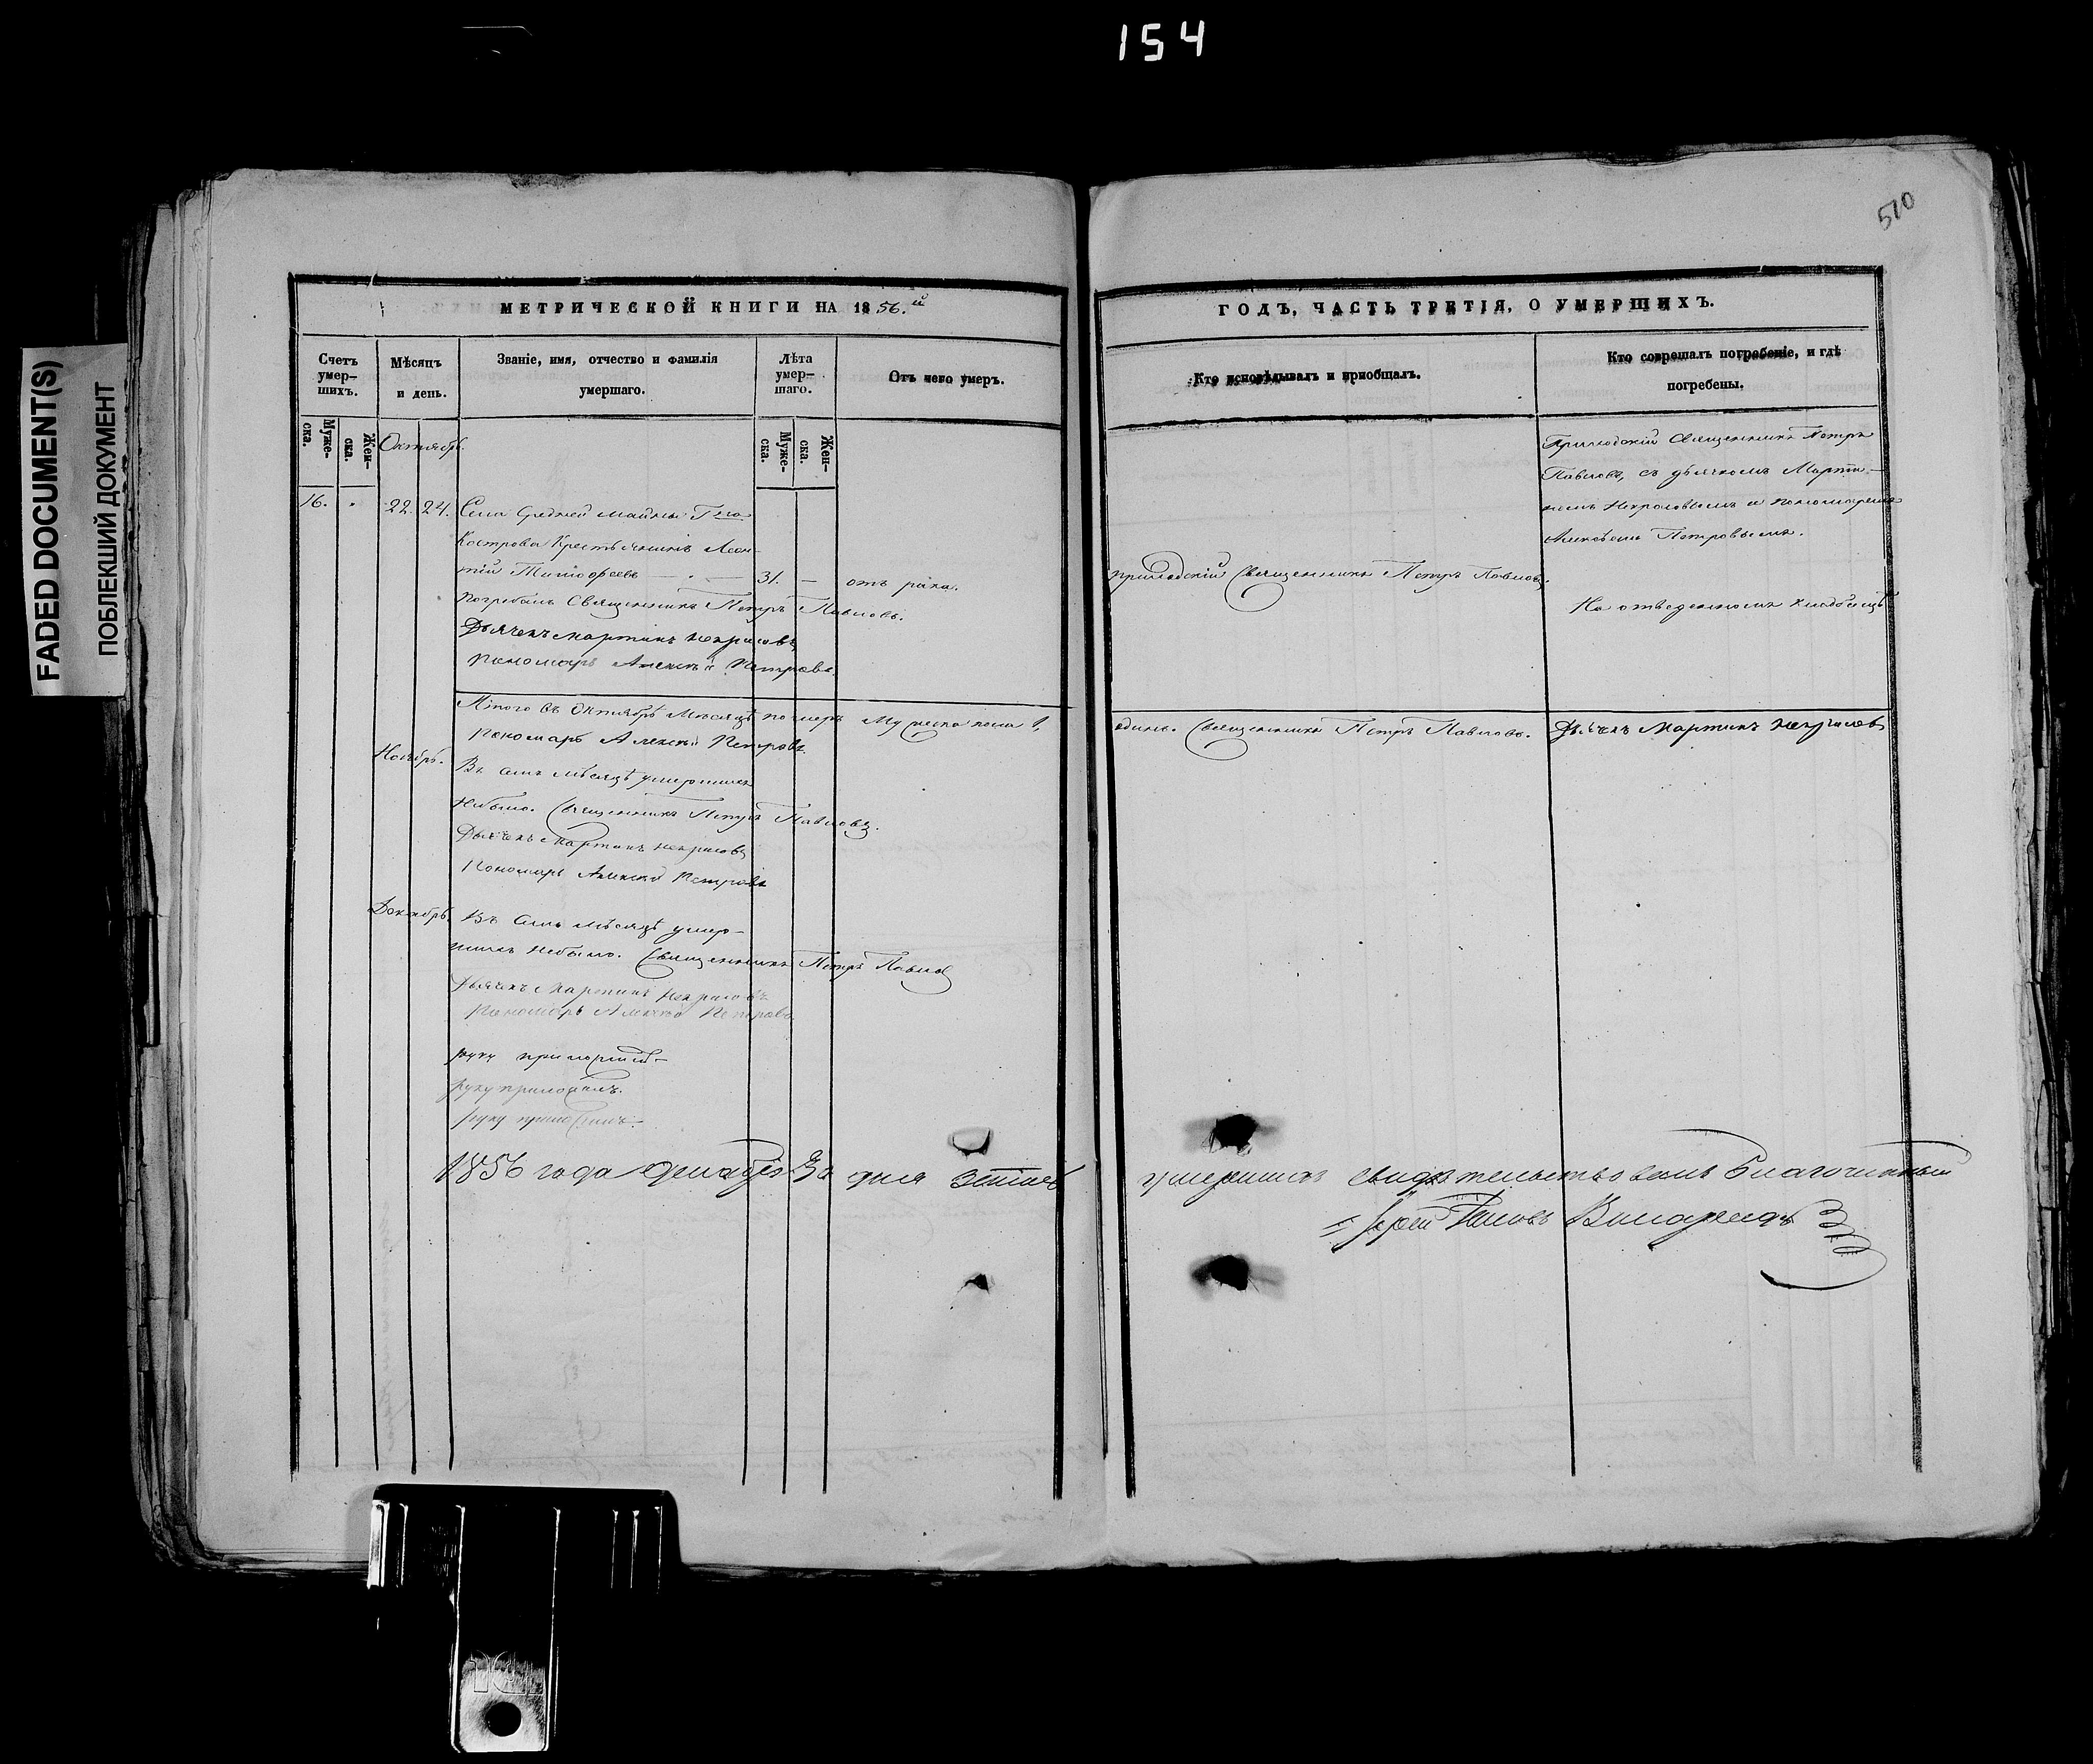 154
FADED DOCUMENT(S)
ПОБЛЕКШИЙ ДОКУМЕНТ
510
МЕТРИЧЕСКОЙ КНИГИ НА 1856.й
Счетъ умер-шихъ.
Муже-ска.
Жен-ска.
Мѣсяцъ и день.
Званіе, имя, отчество и фамилія
умершаго.
Лѣта умер-шаго.
Муже-ска.
Жен-ска.
Отъ чего умеръ.
Октябрь.
16. " 22. 24. Села Средней Майны Гна
Кострова Крестьянинъ Леон-
тій Тимофеевъ — " — 31. — отъ рака.
Погребалъ Священникъ Петръ Павловъ.
Дьячекъ Мартинъ Некрасовъ
Пономарь Алексѣй Петровъ.
Итого въ Октябрѣ Мѣсяцѣ померъ Мужеска пола 1,
Пономарь Алексѣй Петровъ.
Ноябрь.
Въ семъ мѣсяцѣ умершихъ
Небыло. Священникъ Петръ Павловъ.
Дьячекъ Мартинъ Некрасовъ
Пономарь Алексѣй Петровъ
Декабрь.
Въ семъ мѣсяцѣ умер-
шихъ Небыло. Священникъ Петръ Павловъ
Дьячекъ Мартинъ Некрасовъ
Пономарь Алексѣй Петровъ
руку приложилъ
руку приложилъ.
руку приложилъ.
1856 года декабря дня
ГОДЪ, ЧАСТЬ ТРЕТІЯ, О УМЕРШИХЪ.
Кто исповѣдывалъ и пріобщалъ.
Кто совершалъ погребеніе, и гдѣ
погребены.
Приходскій Священникъ Петръ
Павловъ, съ дьячкомъ Марти-
номъ Некрасовымъ и пономаремъ
Алексѣемъ Петровымъ.
приходскій Священникъ Петръ Павловъ.
На отведенномъ кладбищѣ
одинъ. Священникъ Петръ Павловъ. Дьячекъ Мартинъ Некрасовъ
умершихъ свидѣтельствовалъ Благочинный
Іерей